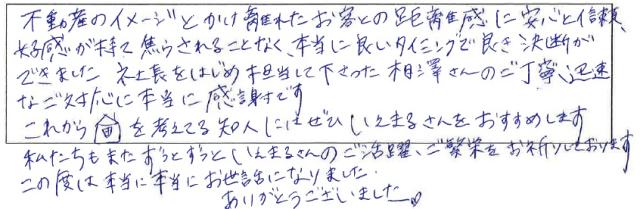 不動産のイメージとかけ離れたお客との距離感に安心と信頼、
好感が持て焦らされることなく、本当に良いタイミングで良き決断が
できました 社長をはじめ担当して下さった相澤さんのご丁寧、迅速
なご対応に本当に感謝です
これから を考えてる知人にはぜひいえまるさんをおすすめします
私たちもまたずっとずっといえまるさんのご活躍、ご繁栄をお祈りしております
この度は本当に本当にお世話になりました.
ありがとうございました♡